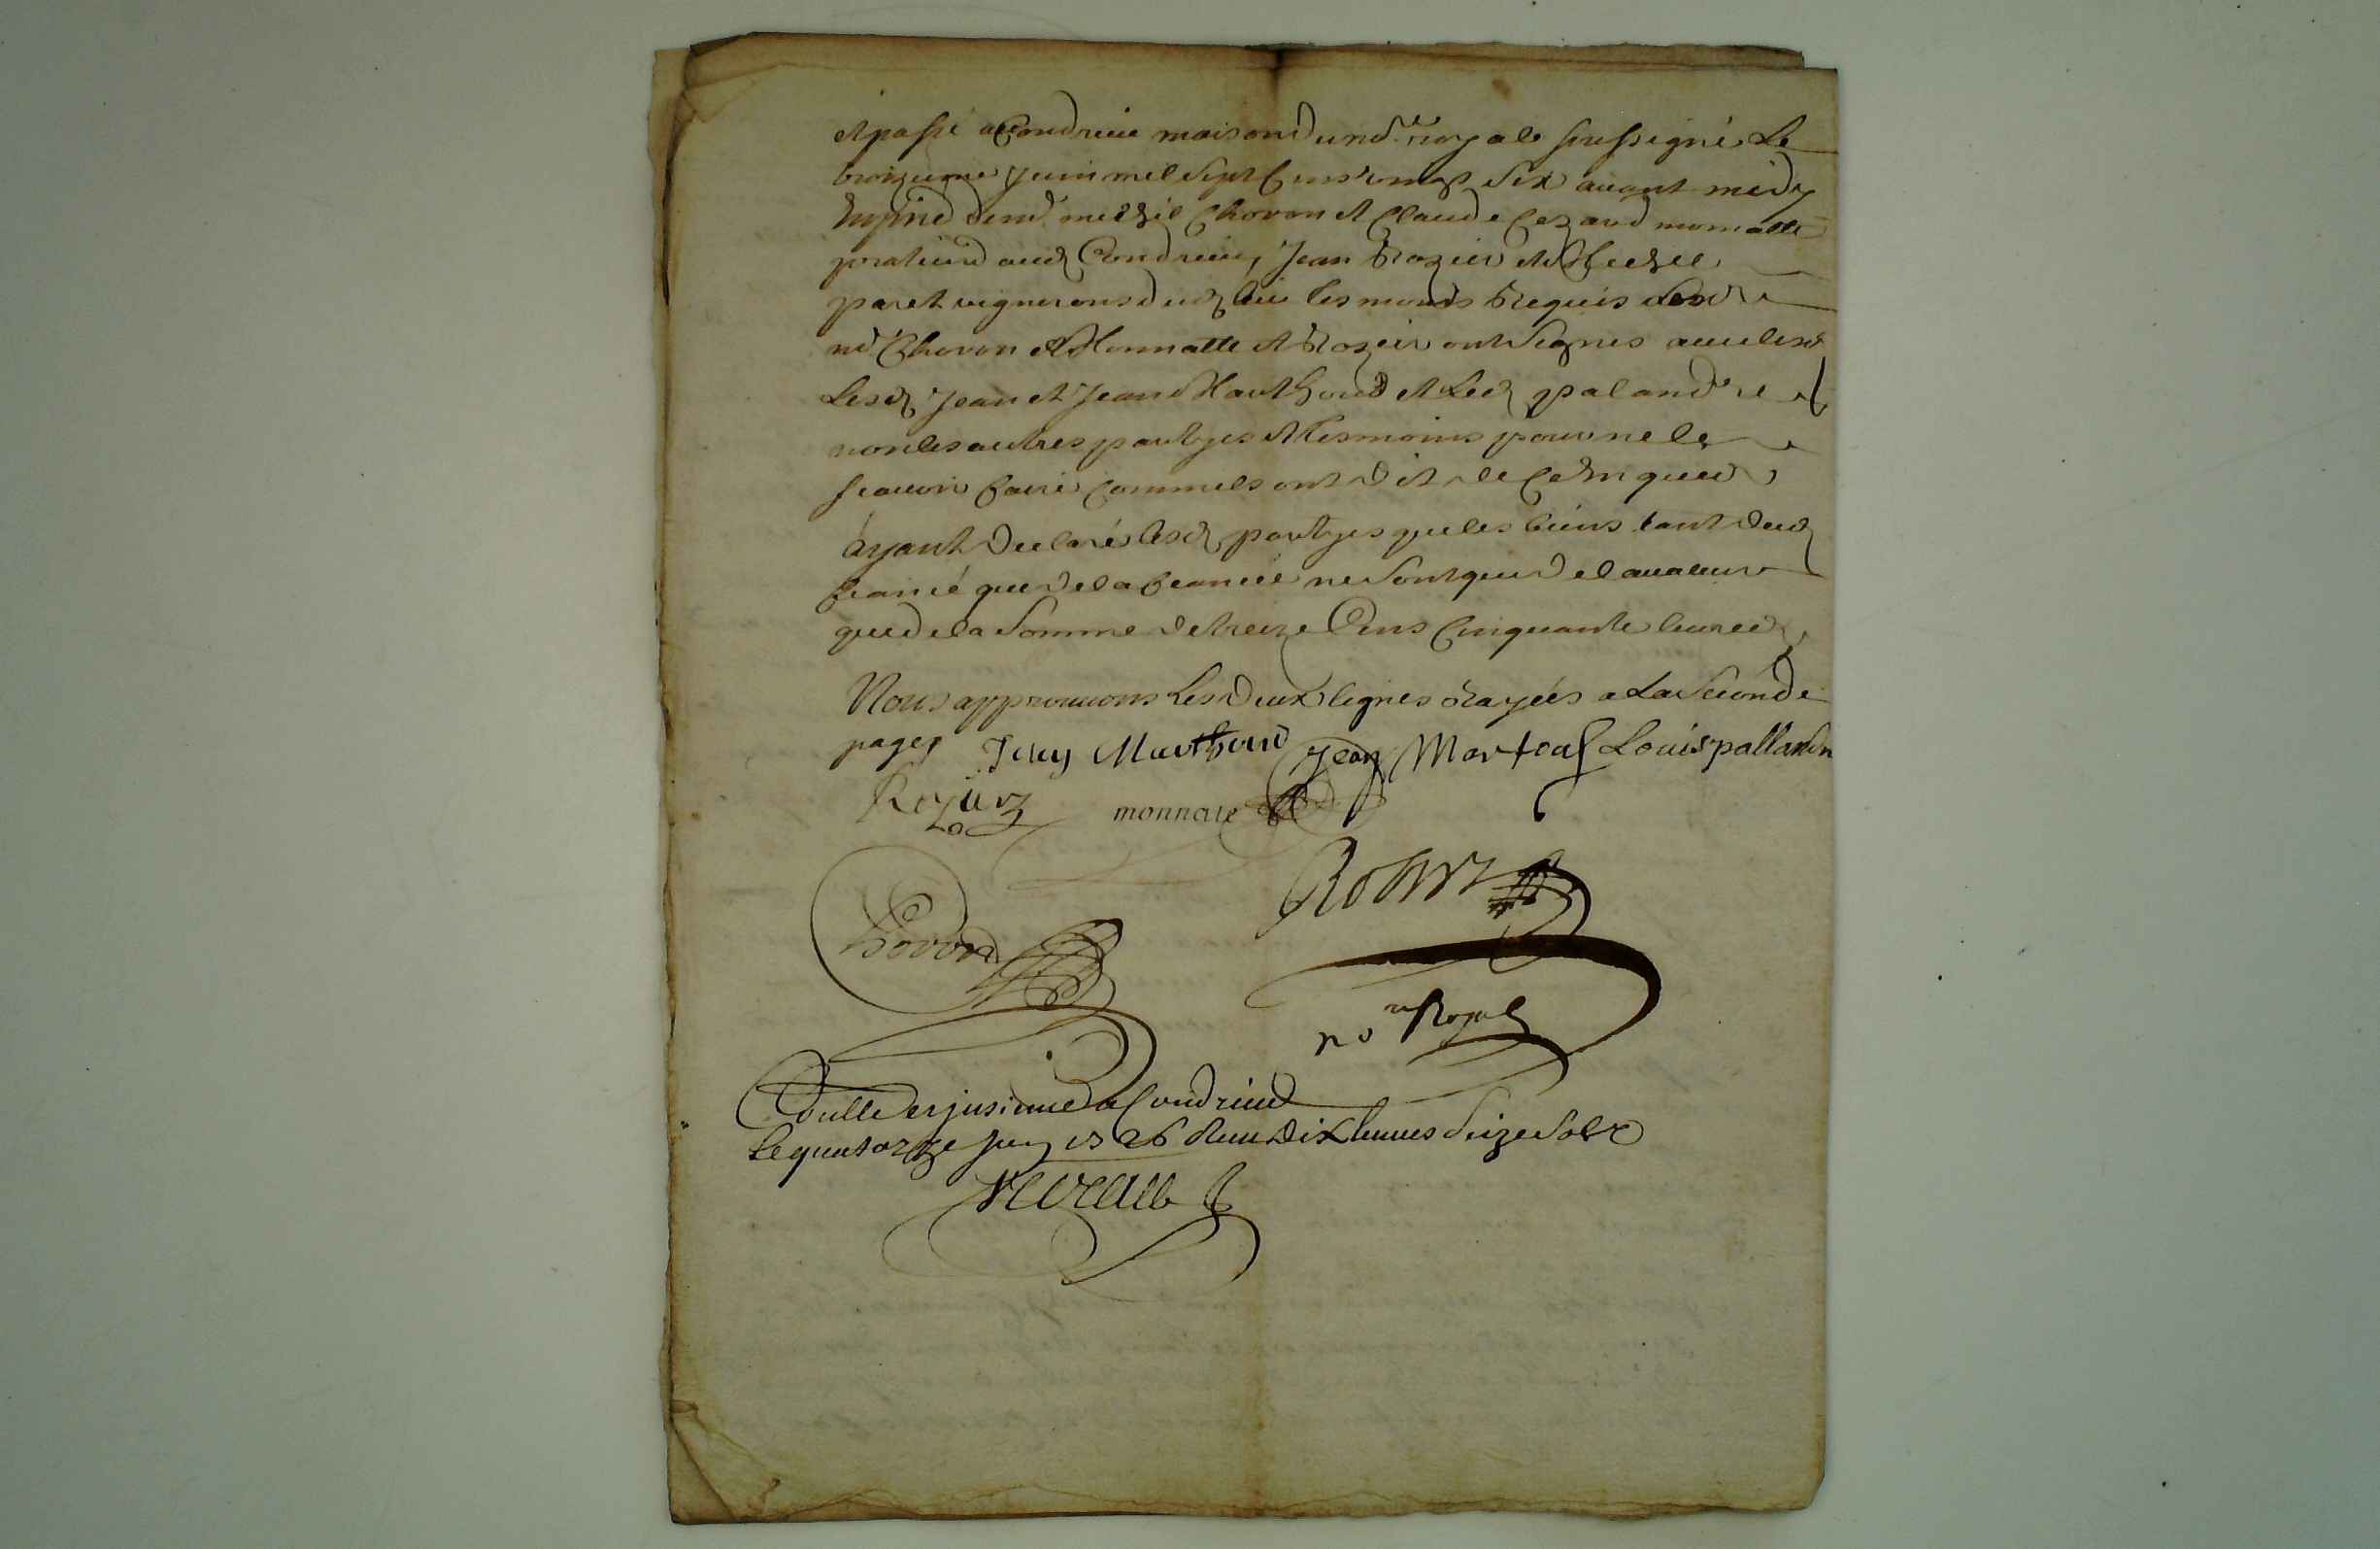 et passé a Condrieu maison du nore. royale soussigné Le
troizieme Juin mil Sept Cens vingt Six avant midy
En pnce de me. Chovon et Claude Cezard monnatte
praticiens aud Condrieu, Jean Rozier et Michel
paret vignerons dud lieu tesmoins Requis Lesd
Chovon et Monnatte et Rozier ont Signes avec lesd
Lesd Jean et Jean Marthoud et Led palandre
non les autres partyes et tesmoins pour ne le
scavoir faire comm'ils ont dit de ce Enquis
áyant declaré lesd partyes que les biens tant dud
fiancé que de la fiancée ne Sont que de la valeur
que de la Somme de treize Cens Cinquante livres
Nous approuvons Les deux lignes rayées a La Seconde
page Jean Marthoud Jean Martoud Louis pallandre
Rozier monnate
Chovon
no re Royal
Controllé et jnsinué a Condrieu
Le quatorze juin 1726 Receu dix livres Seize Sols